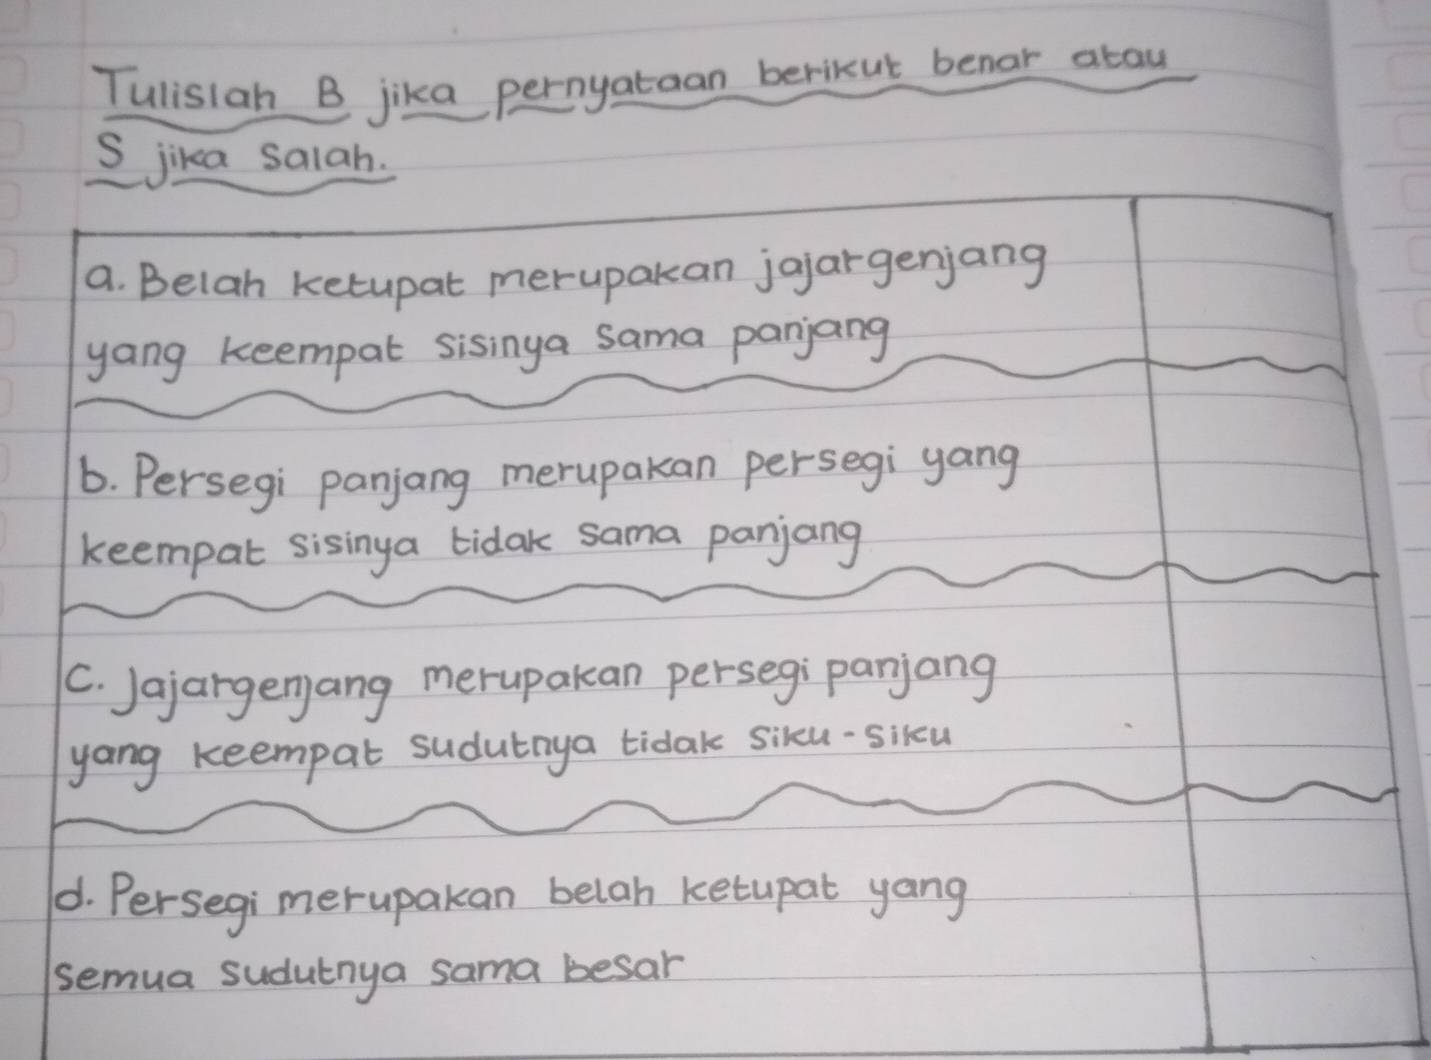 Tulislah B jika pernyataan berikut benar atau
S jika salah.
a. Belah ketupat merupakan jajargenjang
yang keempat sisinya sama panjang
b. Persegi panjang merupakan persegi yang
keempat sisinya tidak sama panjang
c. Jajargenjang merupakan persegi panjang
yang keempat sudutnya tidak siku-siku
d. Persegi merupakan belah ketupat yang
semua sudutnya sama besar